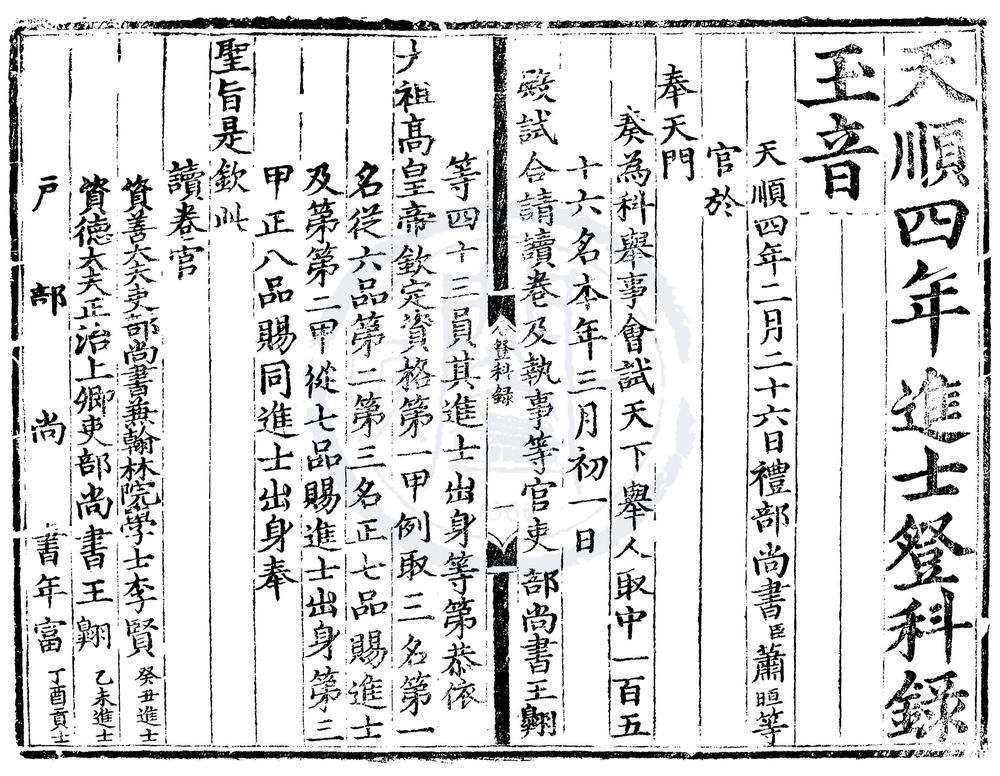 天順四年進士登科録
玉音
天順四年二月二十六日禮部尚書臣蕭晅等
官於
奉天門
奏為科舉事會試天下舉人取中一百五
十六名本年三月初一日
殿試合請讀卷及執事等官吏部尚書王翺
等四十三員其進士出身等第恭依
太祖高皇帝欽定資格第一甲例取三名第一
名從六品第二第三名正七品賜進士
及第第二甲從七品賜進士出身第三
甲正八品賜同進士出身奉
聖旨是欽此
讀卷官
資善大夫吏部尚書兼翰林院學士李賢 癸丑進士
資德大夫正治上卿吏部尚書王翺 乙未進士
戶部尚書年富 丁酉貢士
登科録
一